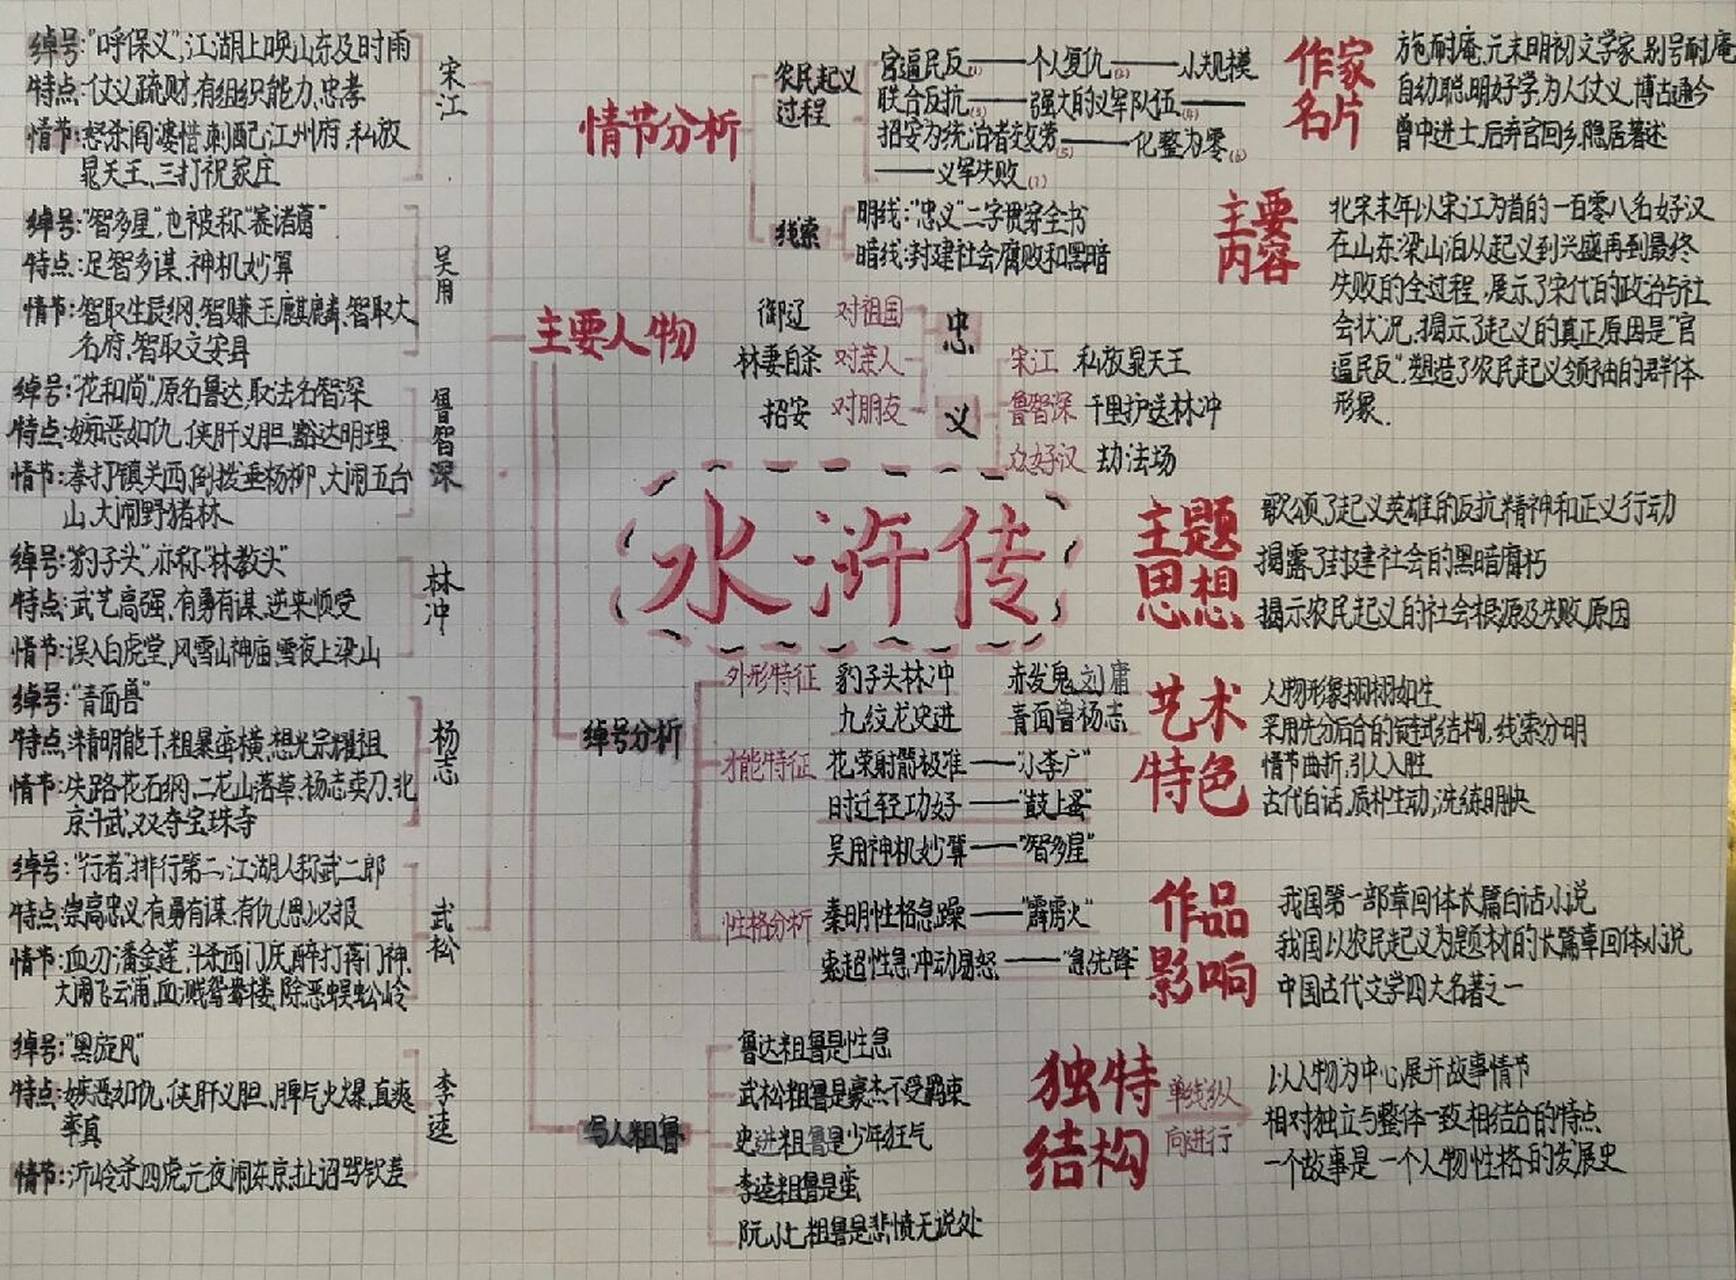 绰号:"呼保义",江湖上唤山东及时雨
特点:仗义疏财,有组织能力,忠孝
情节:怒杀阎婆惜,刺配江州府,私放
晁天王、三打祝家庄
宋江
绰号:"智多星",也被称"赛诸葛"
特点:足智多谋,神机妙算
情节:智取生辰纲,智赚玉麒麟,智取大
名府,智取文安县
吴用
绰号:"花和尚",原名鲁达,取法名智深
特点:嫉恶如仇,侠肝义胆,豁达明理
情节:拳打镇关西,倒拔垂杨柳、大闹五台
山、大闹野猪林
鲁智深
绰号:"豹子头",亦称"林教头"
特点:武艺高强,有勇有谋,逆来顺受
情节:误入白虎堂,风雪山神庙,雪夜上梁山
林冲
绰号:"青面兽"
特点:精明能干,粗暴蛮横,想光宗耀祖
情节:失路花石纲、二龙山落草、杨志卖刀、北
京斗武,双夺宝珠寺
杨志
绰号:"行者",排行第二,江湖人称武二郎
特点:崇高忠义,有勇有谋,有仇(恩)必报
情节:血刃潘金莲,斗杀西门庆,醉打蒋门神,
大闹飞云浦,血溅鸳鸯楼,除恶蜈蚣岭
武松
绰号:"黑旋风"
特点:嫉恶如仇,侠肝义胆、脾气火爆,直爽
率真
情节:沂岭杀四虎,元夜闹东京,扯诏骂钦差
李逵
情节分析
农民起义
过程
官逼民反(1)——个人复仇(2)——小规模
联合反抗(3)——强大的义军队伍(4)——
招安为统治者效劳(5)——化整为零(6)
——义军失败(7)
线索
明线:"忠义"二字贯穿全书
暗线:封建社会腐败和黑暗
主要人物
御辽 对祖国
林妻自杀 对亲人
招安 对朋友
忠
义
宋江 私放晁天王
鲁智深 千里护送林冲
众好汉 劫法场
水浒传
绰号分析
外形特征 豹子头林冲 赤发鬼刘庸
九纹龙史进 青面兽杨志
才能特征 花荣射箭极准——"小李广"
时迁轻功好——"鼓上蚤"
吴用神机妙算——"智多星"
性格分析 秦明性格急躁——"霹雳火"
索超性急冲动易怒——"急先锋"
写人粗鲁
鲁达粗鲁是性急
武松粗鲁是豪杰不受羁束
史进粗鲁是少年狂气
李逵粗鲁是蛮
阮小七粗鲁是悲愤无说处
作家
名片
施耐庵,元末明初文学家,别号耐庵
自幼聪明好学,为人仗义,博古通今
曾中进士,后弃官回乡,隐居著述
主要
内容
北宋末年以宋江为首的一百零八名好汉
在山东梁山泊从起义到兴盛再到最终
失败的全过程,展示了宋代的政治与社
会状况,揭示了起义的真正原因是"官
逼民反",塑造了农民起义领袖的群体
形象.
主题
思想
歌颂了起义英雄的反抗精神和正义行动
揭露了封建社会的黑暗腐朽
揭示农民起义的社会根源及失败原因
艺术
特色
人物形象栩栩如生
采用先分后合的链式结构,线索分明
情节曲折,引人入胜
古代白话,质朴生动,洗练明快
作品
影响
我国第一部章回体长篇白话小说
我国以农民起义为题材的长篇章回体小说
中国古代文学四大名著之一
独特
结构
单线纵
向进行
以人物为中心,展开故事情节
相对独立与整体一致相结合的特点
一个故事是一个人物性格的发展史